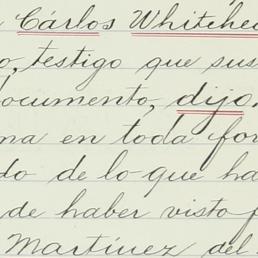 Cárlos Whitehe
o, testigo que sus
documento, dijo.
ma en toda for
do de lo que ha
de haber visto f
Martínez del